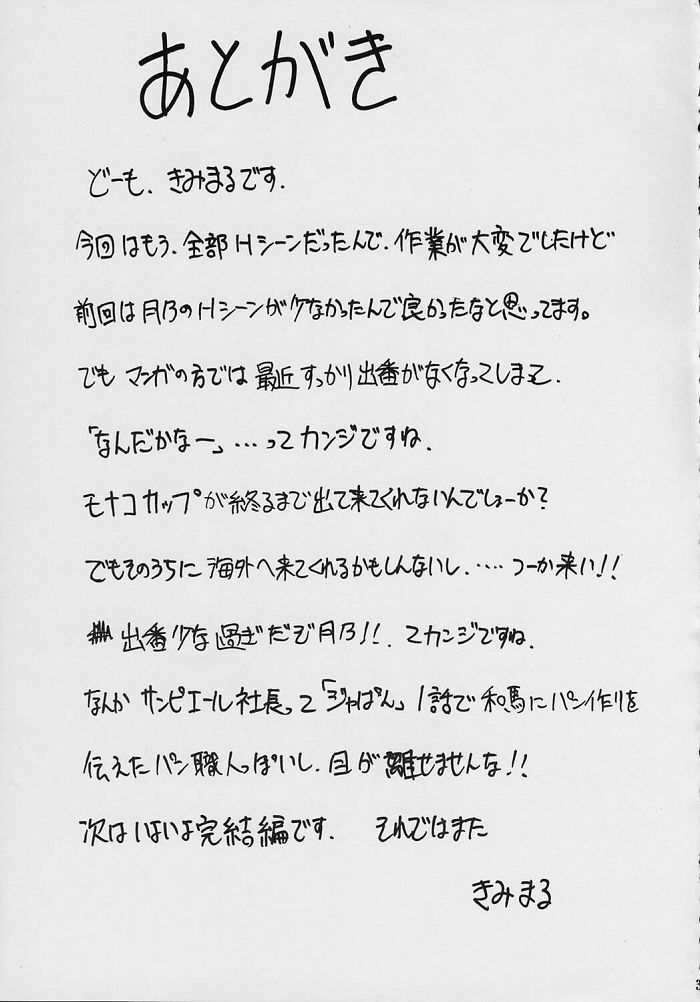 あとがき
どーも、きみまるです.
今回はもう、全部Hシーンだったんで、作業が大変でしたけど
前回は月乃のHシーンが少なかったんで良かったなと思ってます。
でも マンガの方では 最近すっかり出番がなくなってしまって、
「なんだかなー」…って カンジですね.
モナコカップが終るまで出て来てくれないんでしょーか?
でもそのうちに海外へ来てくれるかもしんないし.‥‥つーか来い!!
出番少な過ぎだぞ月乃!!. てカンジですね.
なんか サンピエール社長って「ジャぱん」1話で和馬にパン作りを
伝えたパン職人っぽいし、目が離せませんな!!
次はいよいよ完結編です. それではまた
きみまる